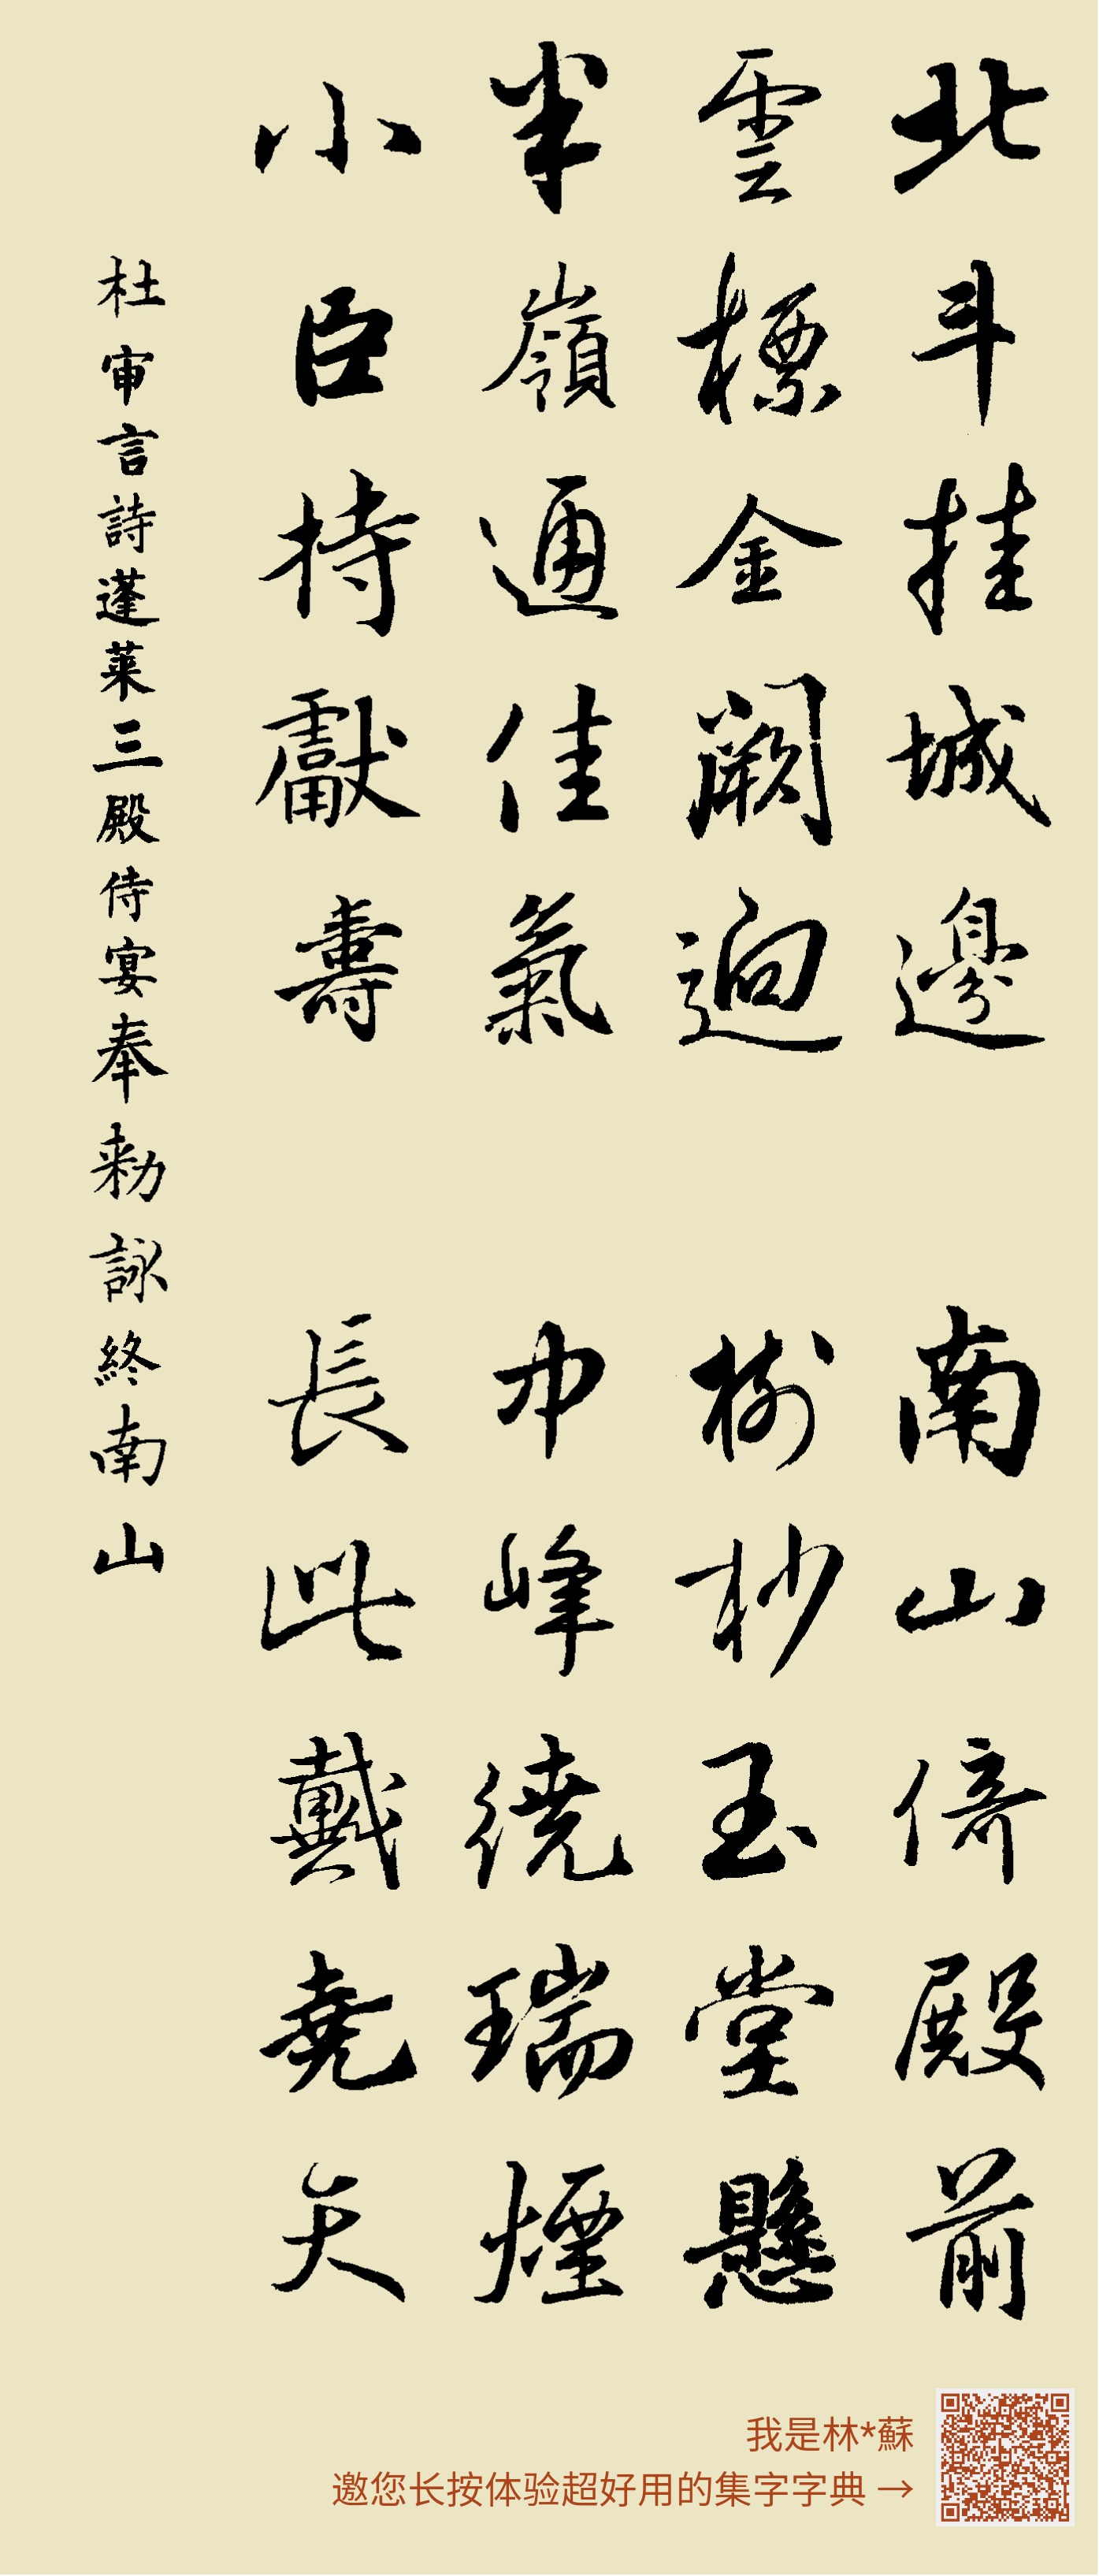 北斗挂城邊 南山倚殿前
雲標金闕迥 樹杪玉堂懸
半嶺通佳氣 中峰繞瑞煙
小臣持獻壽 長此戴堯天
杜审言詩蓬萊三殿侍宴奉勑詠終南山
我是林*蘇
邀您长按体验超好用的集字字典 →